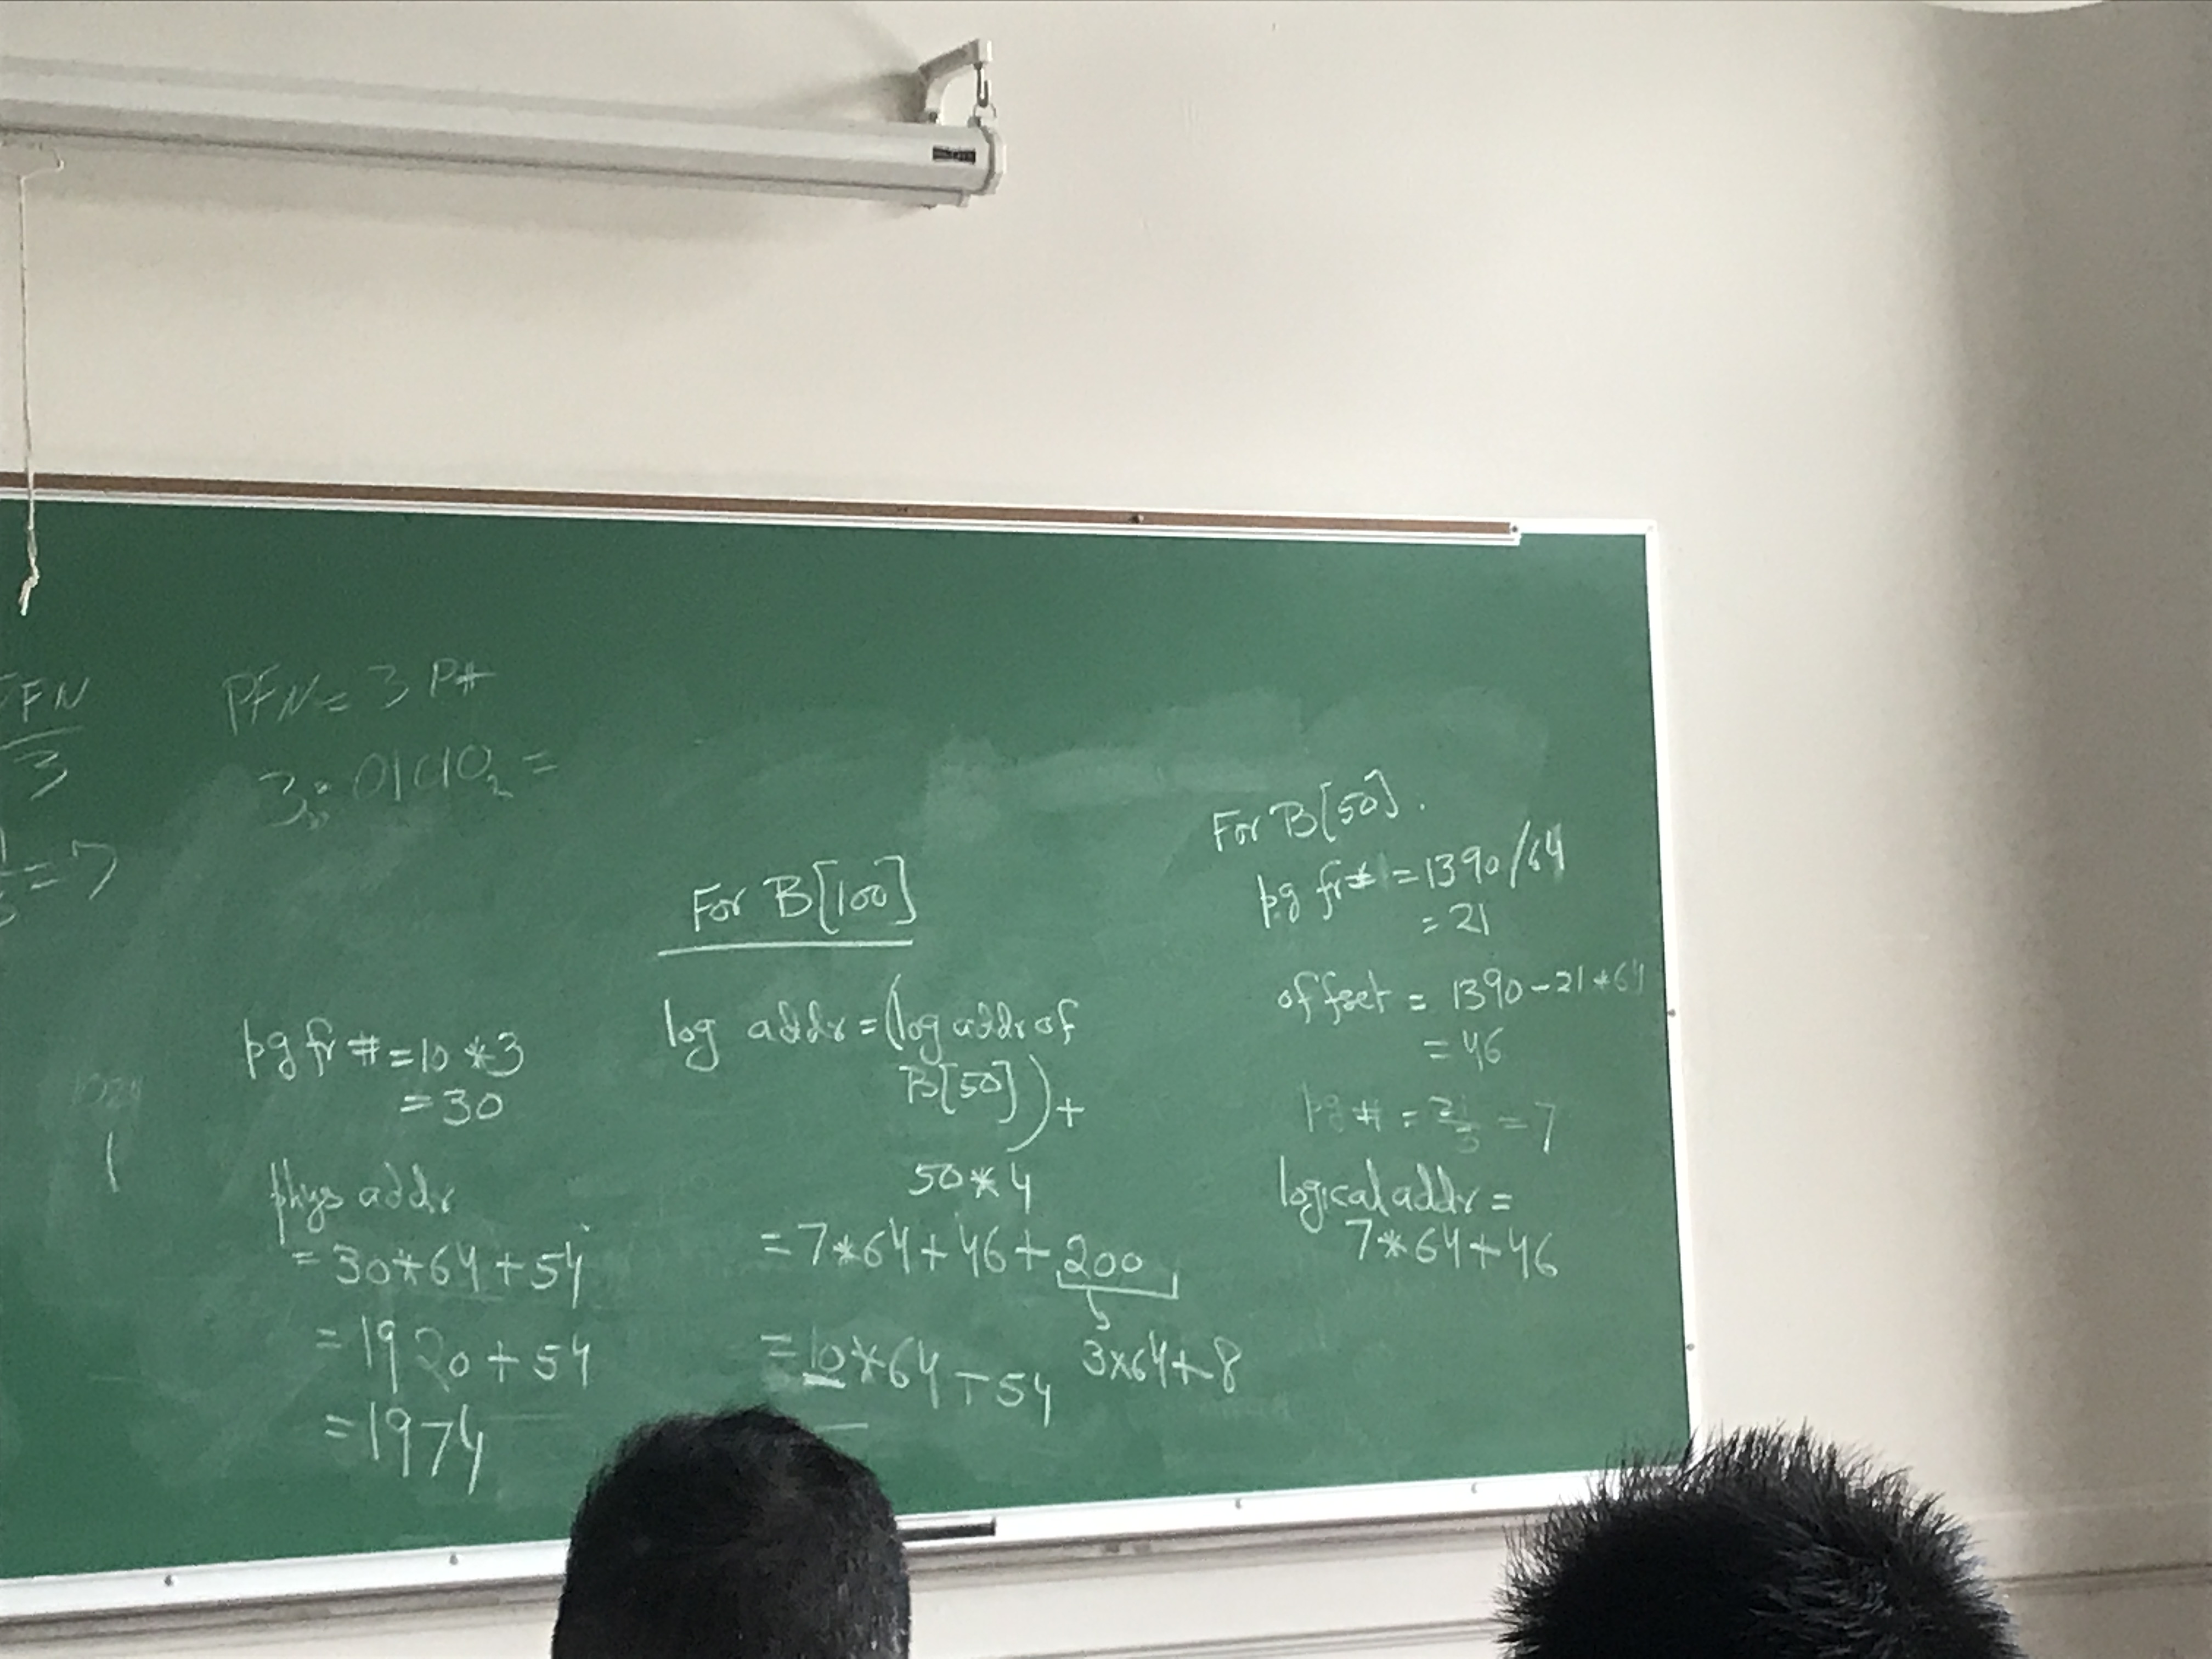 PFN
3
= 7
PFN = 3 P#
pg fr # = 10 * 3
= 30
phys addr
= 30*64+54
= 1920+54
= 1974
For B[100]
log addr = (log addr of
B[50]) +
50*4
= 7*64+46+200
3x64+8
= 10*64+54
For B[50].
pg fr# = 1390/64
= 21
offset = 1390-21*64
= 46
pg # = 21/3 = 7
logical addr =
7*64+46